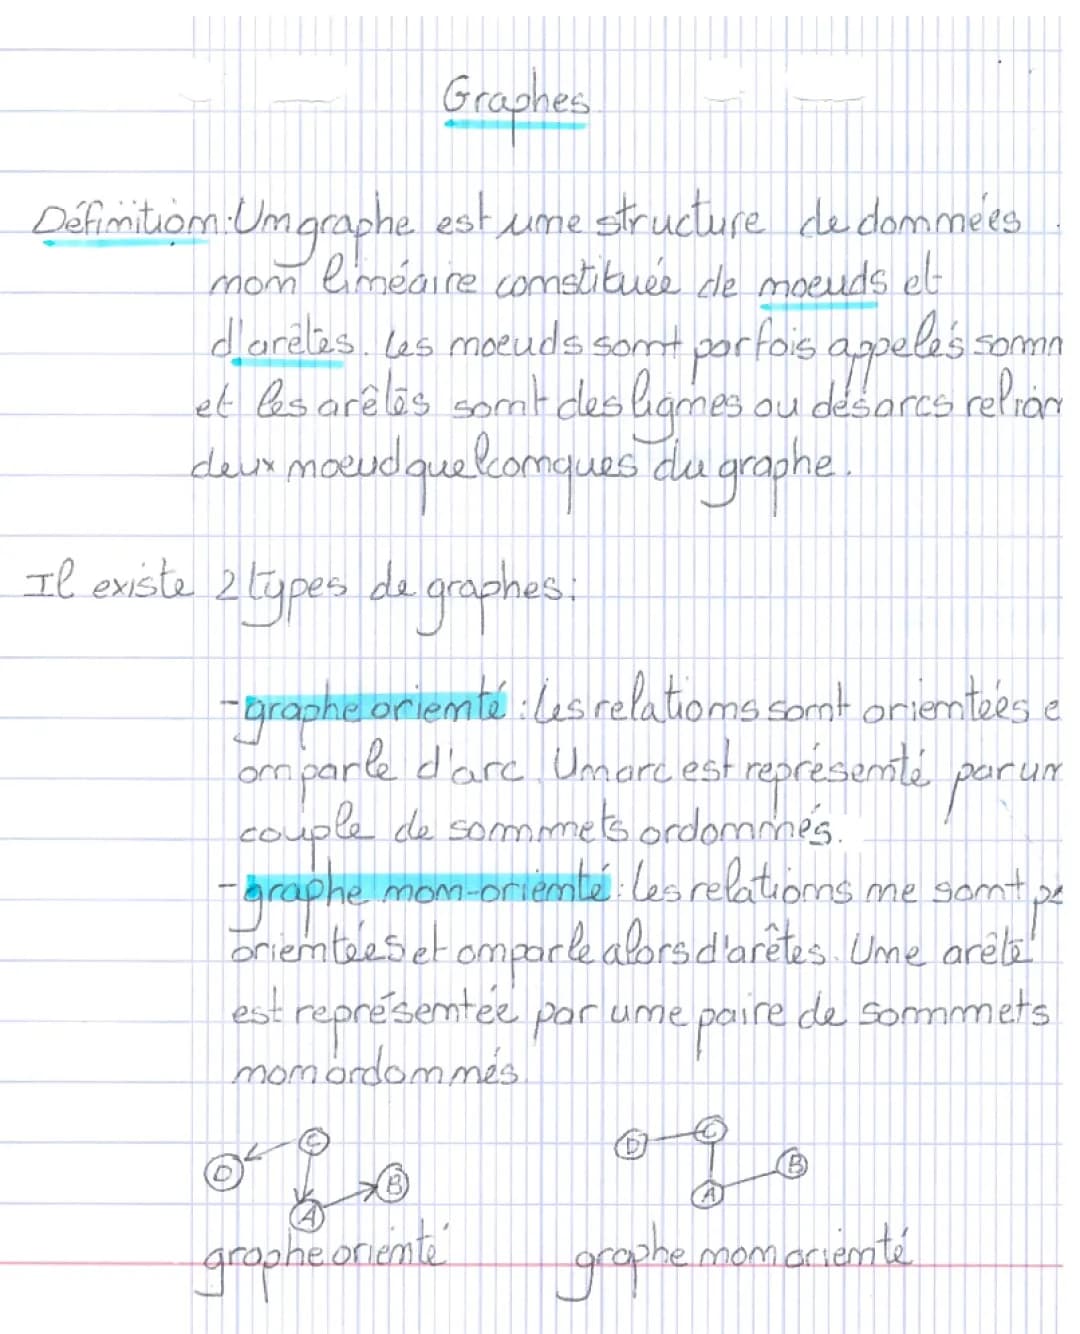 Graphes
Définition: Un graphe est une structure de données
non linéaire constituée de noeuds et
d'arêtes. Les noeuds sont parfois appelés somm
et les arêtes sont des lignes ou des arcs relian
deux noeud quelconques du graphe.
Il existe 2 types de graphes:
- graphe orienté : Les relations sont orientées e
on parle d'arc. Un arc est représenté par un
couple de sommets ordonnés.
- graphe non-orienté : les relations ne sont pa
orientées et on parle alors d'arêtes. Une arête
est représentée par une paire de sommets
non ordonnés.
D C A B
D C A B
graphe orienté graphe non orienté